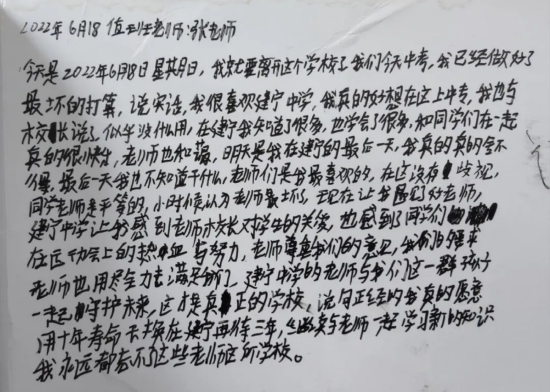 2022年6月18 值班老师:张老师
今天是2022年6月18日星其月日,我就要离开这个学校了我们今天中考,我已经做好了
最坏的打算,说实话,我很喜欢建宁中学,我真的好想在这上中专,我也与
校长说了,似乎没什么用,在建宁我知道了很多,也学会了很多,和同学们在一起
真的很快乐,老师也和蔼,明天是我在建宁的最后一天,我真的真的舍不
得,最后一天我也不知道干什么,老师们是我最喜欢的,在这没有歧视,
同学老师是平等的,小时候认为老师最坏了,现在让我遇见了好老师,
建宁中学让我感到老师校长对学生的关爱,也感到同学们
在运动会上的热血与努力,老师尊重我们的意见,我们的
老师也用尽全力去满足我们,建宁中学的老师与我们这一群孩子
一起守护未来,这才是真正的学校,说句正经的我真的愿意
用十年寿命去换在建宁再待三年,继续与老师一起学习新的知识
我永远都忘不了这些老师这所学校。